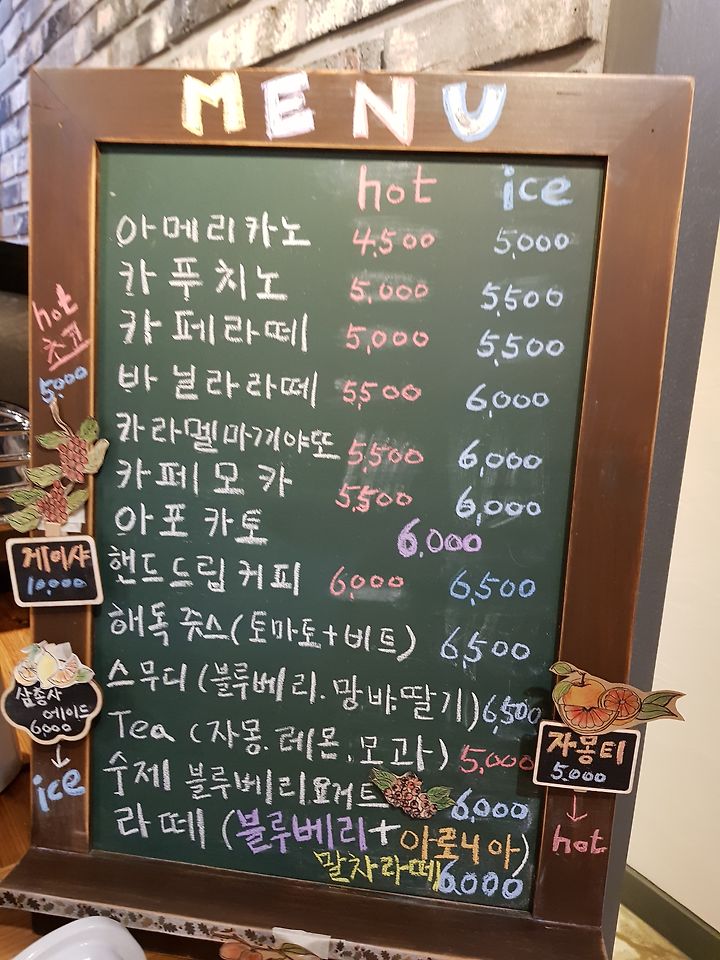 MENU
hot ice
아메리카노 4,500 5,000
카푸치노 5,000 5,500
카페라떼 5,000 5,500
바닐라라떼 5,500 6,000
카라멜마끼야또 5,500 6,000
카페모카 5,500 6,000
아포카토 6,000
핸드드립커피 6,000 6,500
해독쥬스(토마토+비트) 6,500
스무디(블루베리.망바.딸기) 6,500
Tea (자몽.레몬.모과) 5,000
수제 블루베리요거트 6,000
라떼 (블루베리+아로니아)
말차라떼 6,000
hot
초코
5,000
게이샤
10,000
삼총사
에이드
6,000
↓
ice
자몽티
5,000
↓
hot